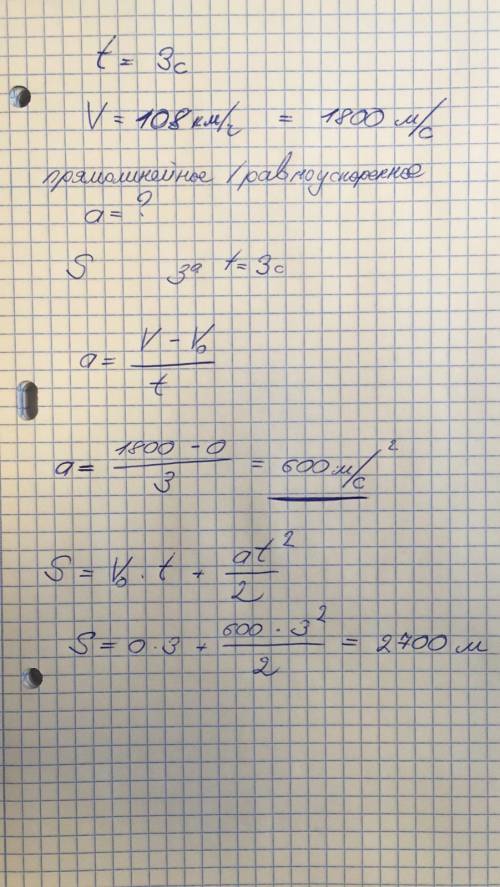 t = 3с
V = 108 км/ч = 1800 м/с
прямолинейное / равноускоренное
a = ?
S за t = 3с
a = (V - V₀)/t
a = (1800 - 0)/3 = 600 м/с²
S = V₀ · t + at²/2
S = 0 · 3 + (600 · 3²)/2 = 2700 м